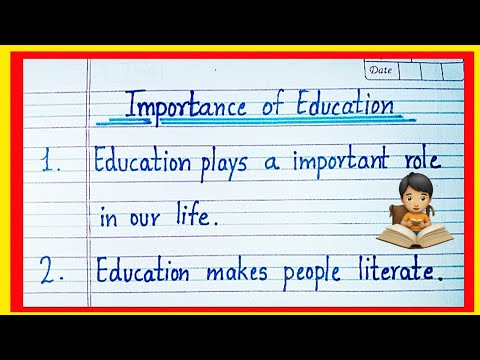 Date
Importance of Education
1. Education plays a important role
in our life.
2. Education makes people literate.